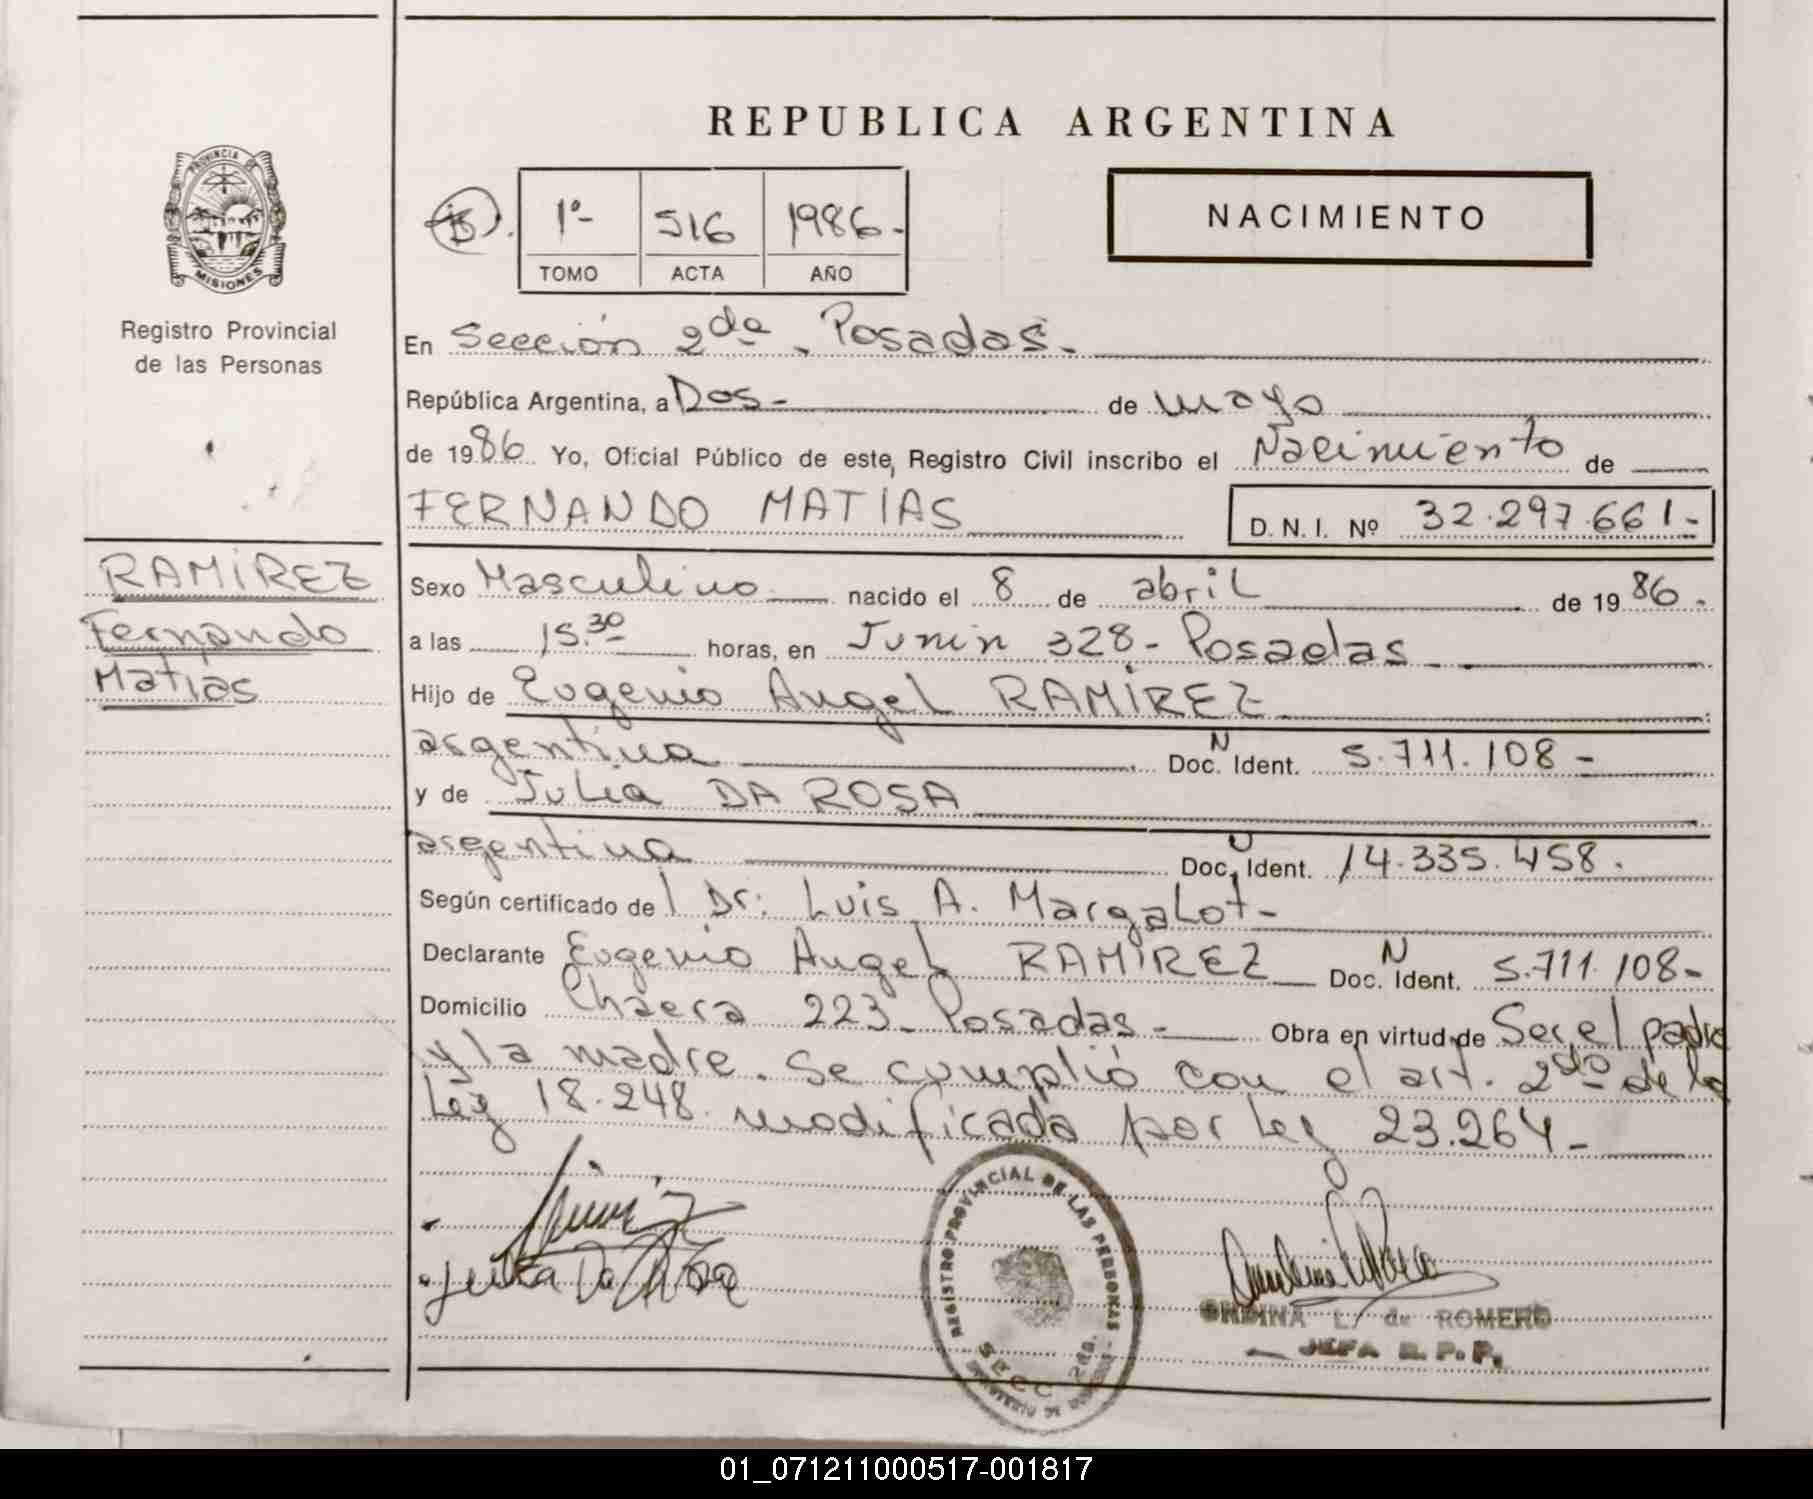 REPUBLICA ARGENTINA
PROVINCIA DE MISIONES
Registro Provincial
de las Personas
1º- 516 1986-
TOMO ACTA AÑO
NACIMIENTO
En Sección 2da - Posadas -
República Argentina, a Dos - de mayo
de 1986 Yo, Oficial Público de este, Registro Civil inscribo el Nacimiento de
FERNANDO MATIAS
D.N.I. Nº 32.297.661-
RAMIREZ
Fernando
Matias
Sexo Masculino nacido el 8 de abril de 1986.
a las 15.30 horas, en Junin 328 - Posadas
Hijo de Eugenio Angel RAMIREZ
argentina N Doc. Ident. 5.711.108-
y de Julia DA ROSA
argentina U Doc. Ident. 14.335.458.
Según certificado de l Dr. Luis A. Margalot-
Declarante Eugenio Angel RAMIREZ N Doc. Ident. 5.711.108-
Domicilio Chacra 223 - Posadas - Obra en virtud de Ser el padre
y la madre. Se cumplió con el art. 2do de la
Ley 18.248 modificada por Ley 23.264-
Julia Da Rosa
REGISTRO PROVINCIAL DE LAS PERSONAS
SECC 2da.
L. de ROMERO
JEFA R.P.P.
01_071211000517-001817